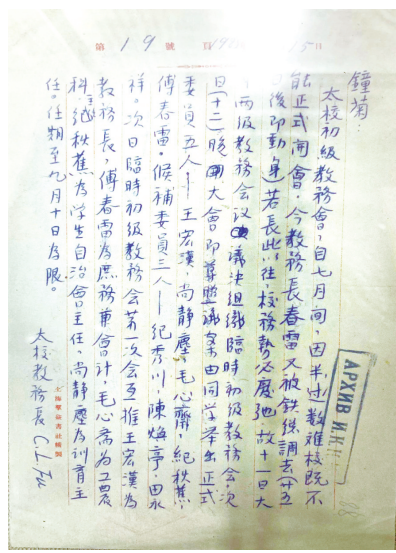 第19號 頁 15日
鐘菊：
太校初級教務會，自七月间，因半过数难校既不
能正式開會，今教務長春雷又被鉄綫調去（廿五
日後即動身）若長此以往，校務勢必废弛。故十一日大
会两级教務会议決組織臨時初級教務会，次
日（十二）晚開大會，即尊照議案由同学举出正式
委員五人——王宏漢，尚静塵，毛心齋，紀秩蕉，
傅春雷。候補委員三人——紀秀川，陳煥亭，田永
祥。次日臨時初級教務会第一次会互推王宏漢為
教務長，傅春雷為庶務兼會計，毛心齋為工農
科主任，紀秩蕉為学生自治會主任，尚静塵為訓育主
任。任期至九月十日為限。
太校教務長
АРХИВ И.К.